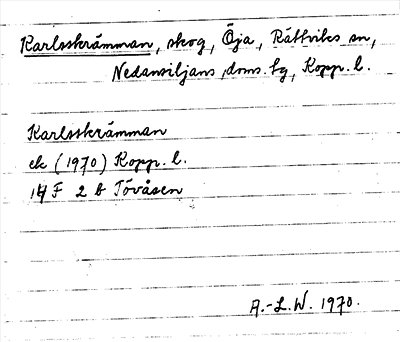 Karlsskrämman, skog, Öja, Rättviks sn,
Nedansiljans doms. tg, Kopp. l.
Karlsskrämman
ek (1970) Kopp. l.
14 F 2 b Tövåsen
A.-L.W. 1970.